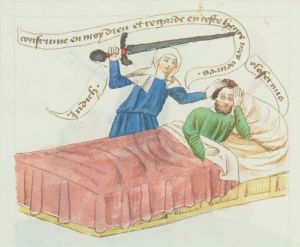 conferme en moy dieu et regarde en ceste heure
Judich
olofernus